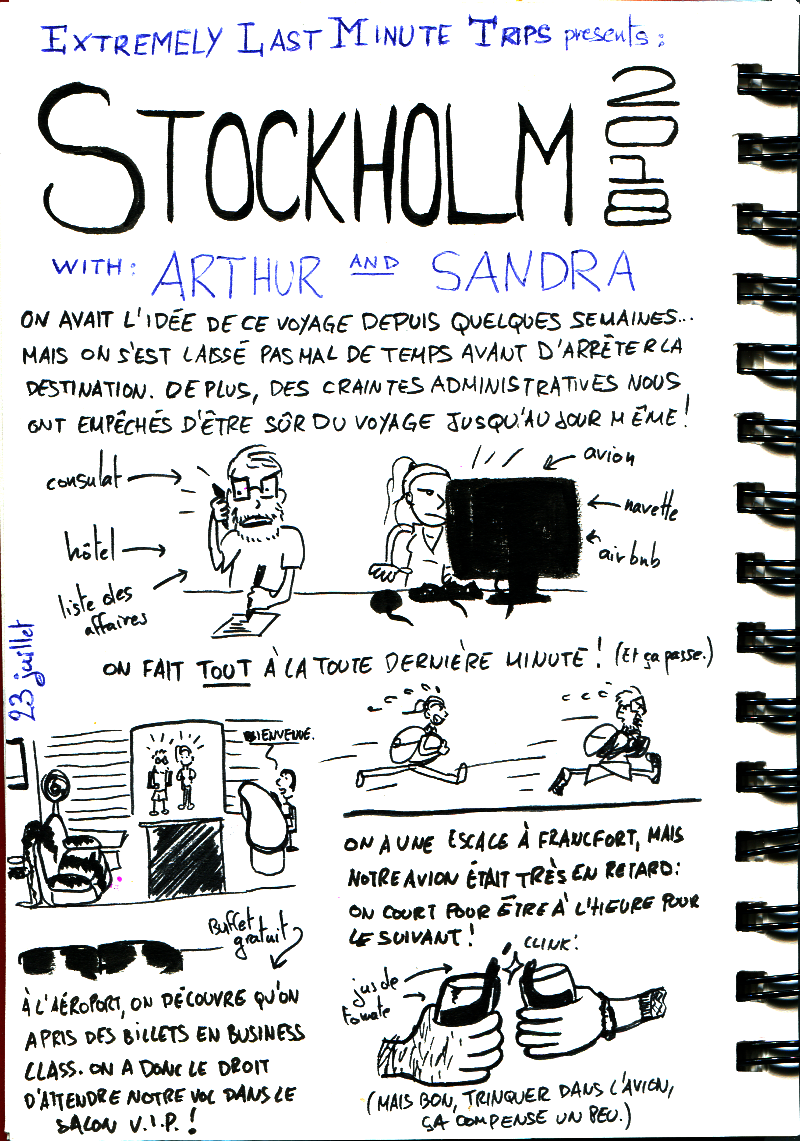 EXTREMELY LAST MINUTE TRIPS presents:
STOCKHOLM
2018
WITH: ARTHUR AND SANDRA
ON AVAIT L'IDÉE DE CE VOYAGE DEPUIS QUELQUES SEMAINES...
MAIS ON S'EST LAISSÉ PAS MAL DE TEMPS AVANT D'ARRÊTER LA
DESTINATION. DE PLUS, DES CRAINTES ADMINISTRATIVES NOUS
ONT EMPÊCHÉS D'ÊTRE SÛR DU VOYAGE JUSQU'AU JOUR MÊME!
consulat
hôtel
liste des
affaires
avion
navette
airbnb
ON FAIT TOUT À LA TOUTE DERNIÈRE MINUTE! (Et ça passe.)
23 juillet
BIENVENUE.
6
Buffet
gratuit
À L'AÉROPORT, ON DÉCOUVRE QU'ON
A PRIS DES BILLETS EN BUSINESS
CLASS. ON A DONC LE DROIT
D'ATTENDRE NOTRE VOL DANS LE
SALON V.I.P.!
ON A UNE ESCALE À FRANCFORT, MAIS
NOTRE AVION ÉTAIT TRÈS EN RETARD:
ON COURT POUR ÊTRE À L'HEURE POUR
LE SUIVANT!
CLINK!
jus de
tomate
(MAIS BON, TRINQUER DANS L'AVION,
ÇA COMPENSE UN PEU.)